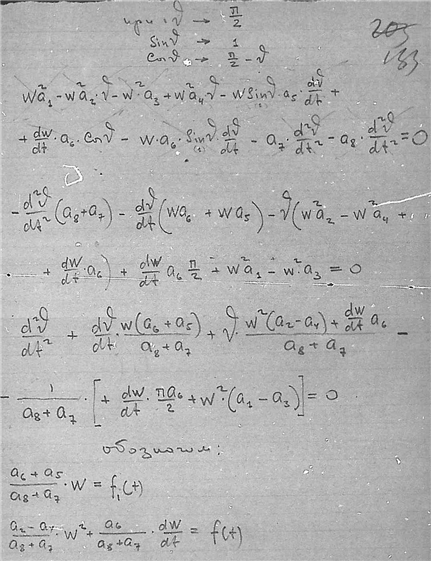 при: ϑ → π/2
203
Sinϑ → 1
183
Cosϑ → π/2 - ϑ
w²a₁ - w²a₂·ϑ - w²·a₃ + w²a₄ϑ - w Sinϑ·a₅·dϑ/dt +
+ dw/dt·a₆·Cosϑ - w·a₆·Sinϑ dϑ/dt - a₇·d²ϑ/dt² - a₈·d²ϑ/dt² = 0
- d²ϑ/dt² (a₈+a₇) - dϑ/dt (wa₆ + wa₅) - ϑ(w²a₂ - w²a₄ +
+ dw/dt·a₆) + dw/dt a₆ π/2 + w²a₁ - w²·a₃ = 0
d²ϑ/dt² + dϑ/dt · w(a₆+a₅)/(a₈+a₇) + ϑ · (w²(a₂-a₄) + dw/dt a₆)/(a₈+a₇) -
- 1/(a₈+a₇) · [+ dw/dt · πa₆/2 + w²·(a₁-a₃)] = 0
обозначим:
(a₆+a₅)/(a₈+a₇) · w = f₁(t)
(a₂-a₄)/(a₈+a₇) · w² + a₆/(a₈+a₇) · dw/dt = f(t)